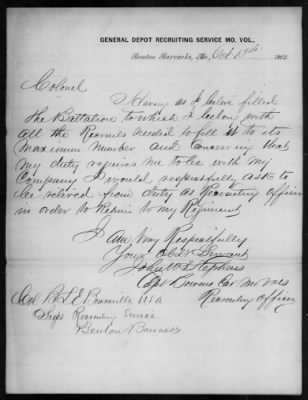 GENERAL DEPOT RECRUITING SERVICE MO. VOL.
Benton Barracks, Mo., Oct 19th 1862
Colonel
Having as I belive filled
the Battalion to which I belong with
all the Recruits needed to fill it to its
Maximum Number and conceiving that
my duty requires me to be with my
Company I would respectfully ask to
be relived from duty as Recruiting officer
in order to Return to my Regiment
I am Very Respectfully
Your Obt Servant
John W Stephens
Capt Bowens Cav Mo Vols
Recruiting Officer
Col B L E Bonneville USA
Supt Recruiting Service
Benton Barracks